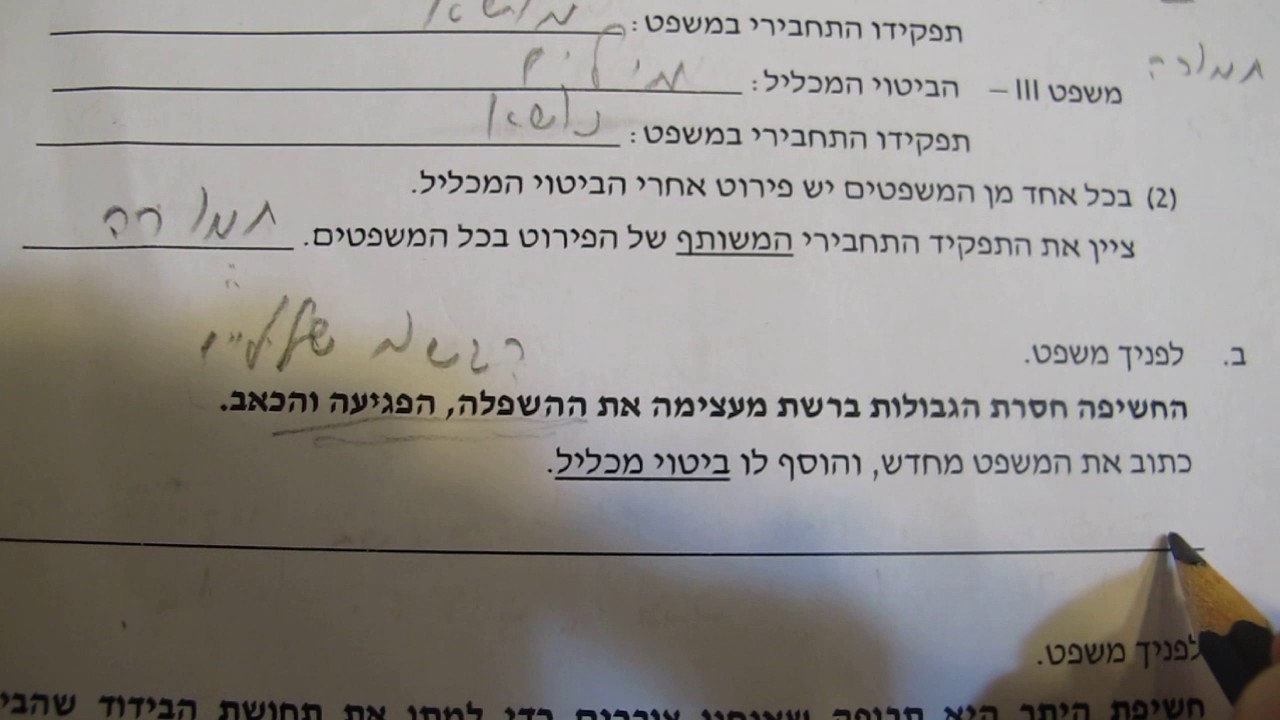 תפקידו התחבירי במשפט: נושא
תמורה
משפט III – הביטוי המכליל: מילים
תפקידו התחבירי במשפט: נושא
(2) בכל אחד מן המשפטים יש פירוט אחרי הביטוי המכליל.
ציין את התפקיד התחבירי המשותף של הפירוט בכל המשפטים. תמורה
ב. לפניך משפט.
החשיפה חסרת הגבולות ברשת מעצימה את ההשפלה, הפגיעה והכאב.
כתוב את המשפט מחדש, והוסף לו ביטוי מכליל.
לפניך משפט.
חשיפת היתר היא תרופה שאנחנו צורכים כדי למתן את תחושת הבידוד